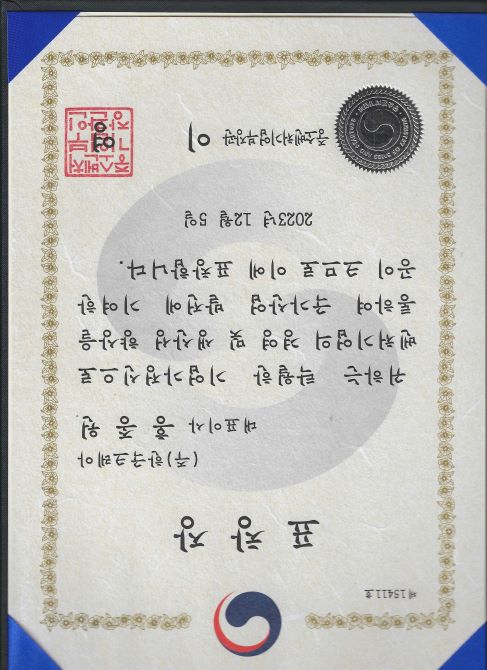 제15411호
표창장
(주)한국크레아
대표이사 홍종원
귀하는 탁월한 기업가정신으로
벤처기업의 경영 및 생산성 향상을
통하여 국가산업 발전에 기여한
공이 크므로 이에 표창합니다.
2023년 12월 5일
중소벤처기업부장관 이 영
중소벤처
기업부
장관인